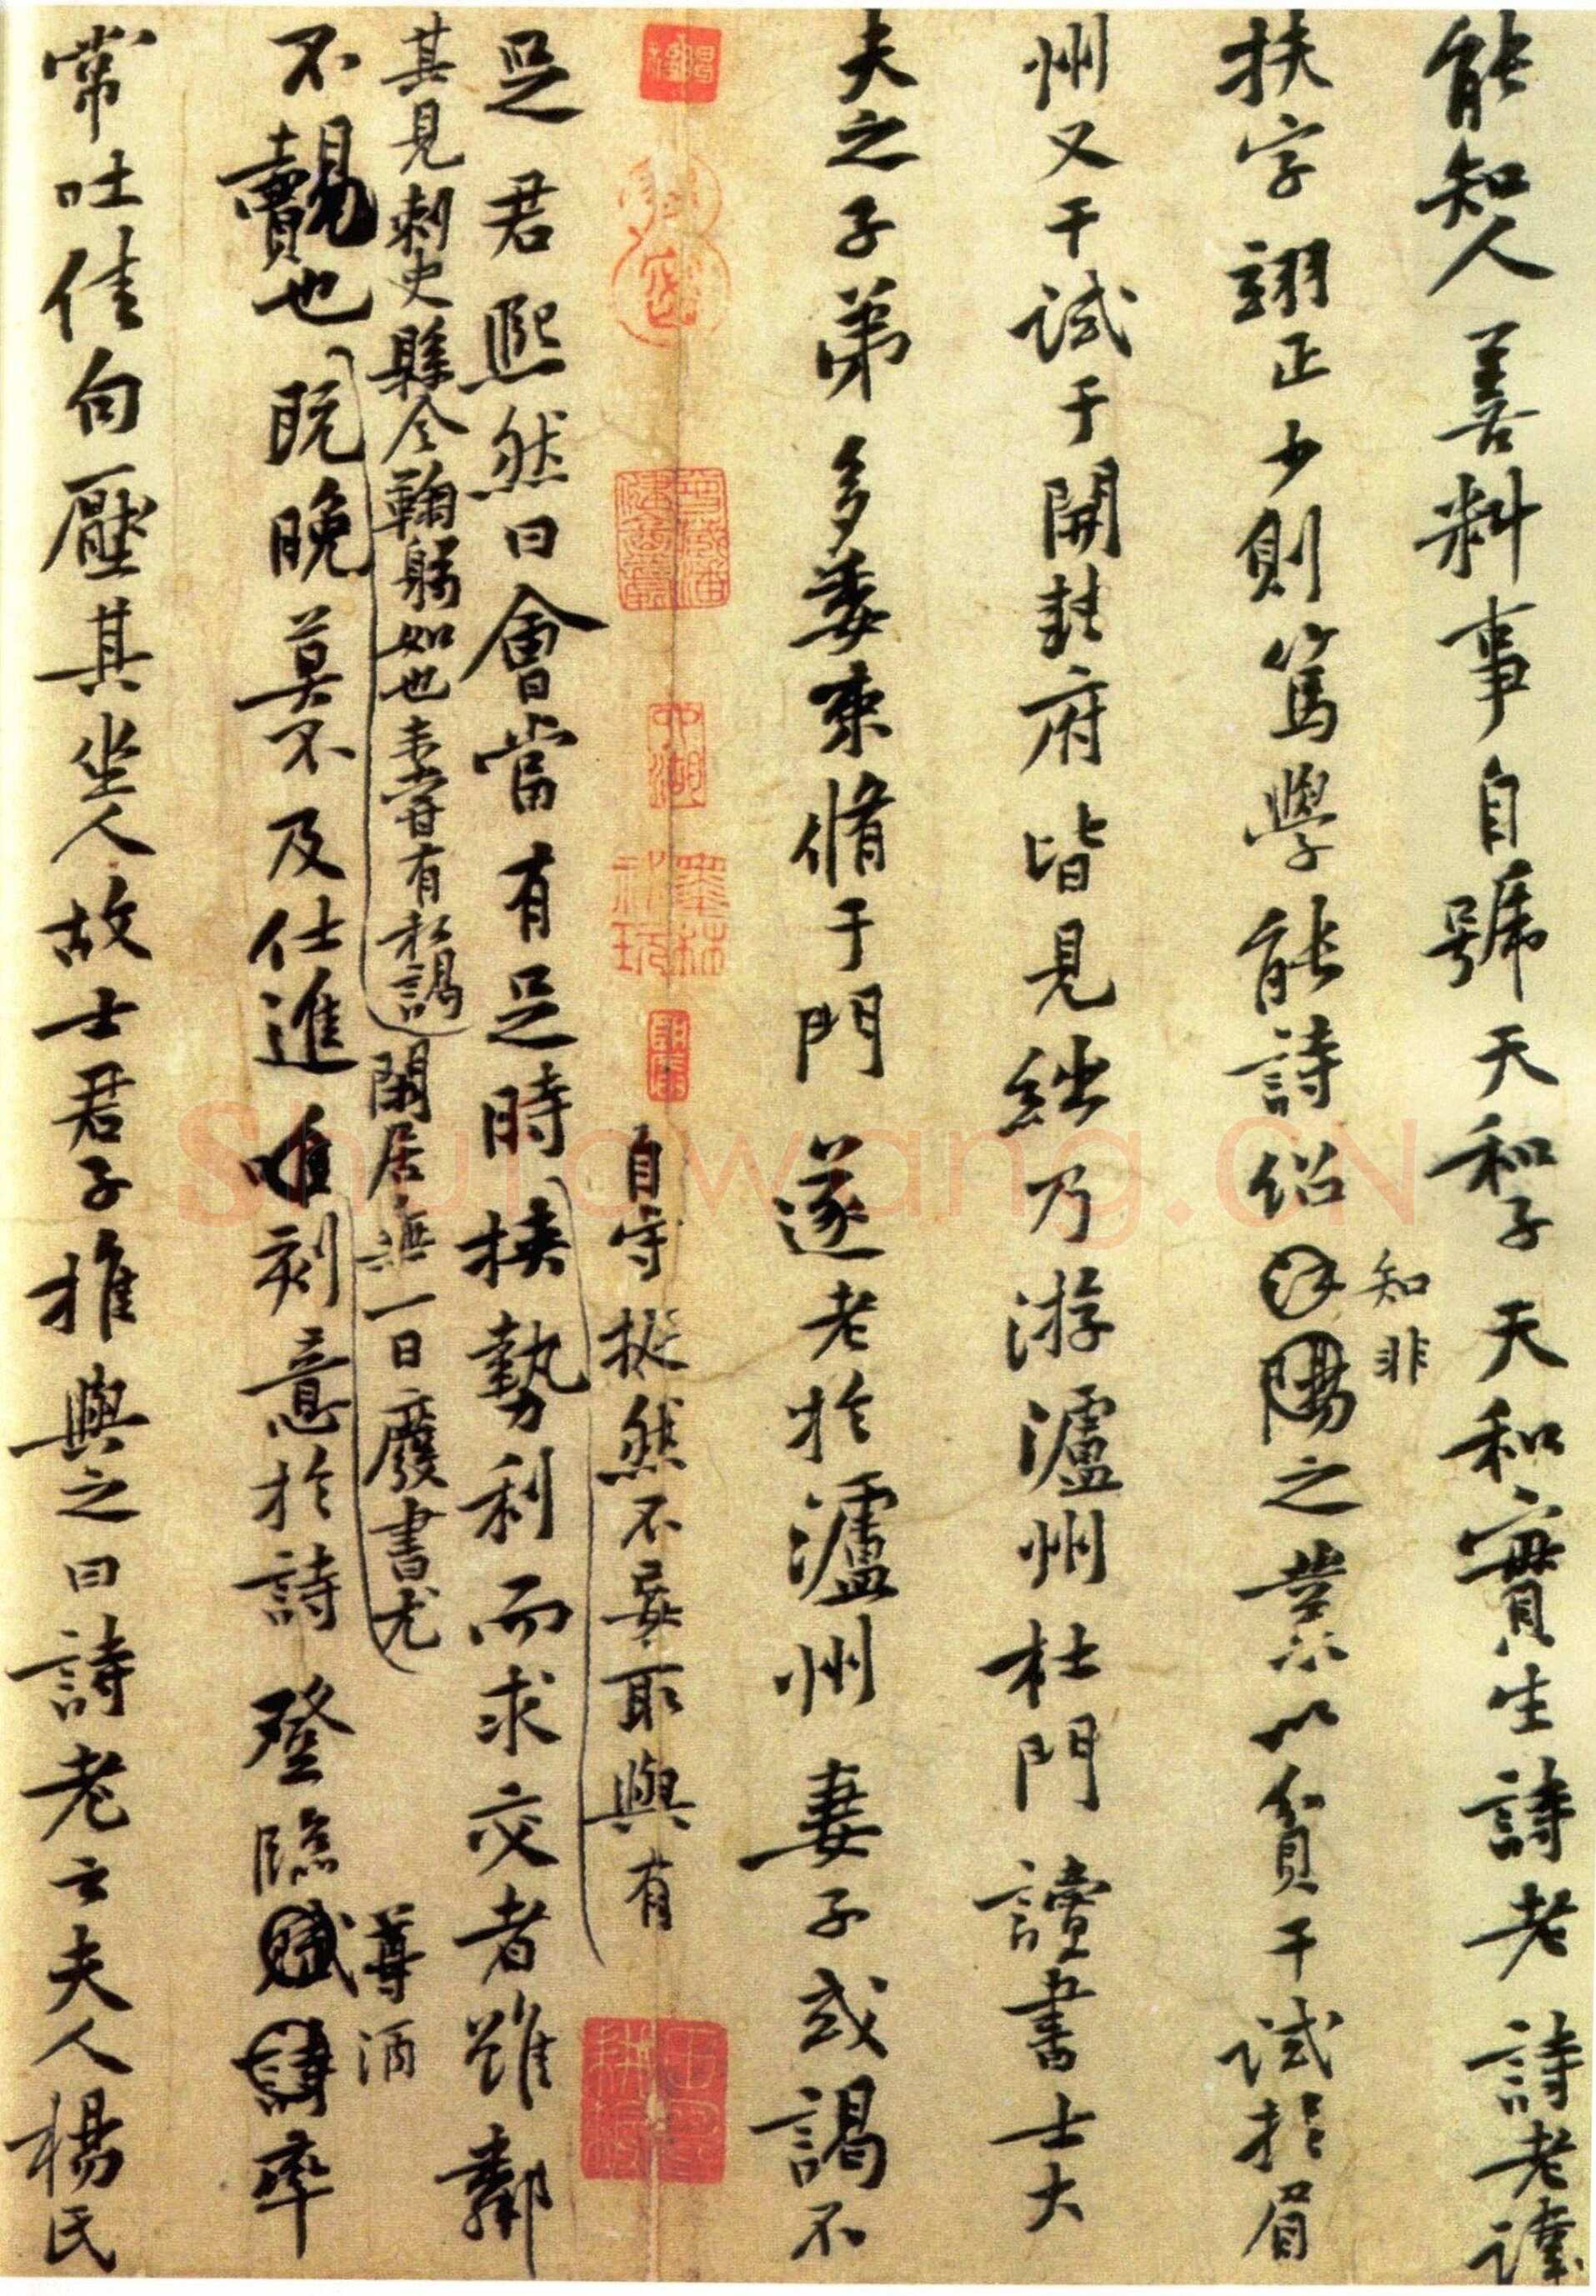 能知人善料事自號天和子天和實生詩老詩老諱
扶字翊正少則篤學能詩紹陽之業以貢干試於眉
知非
州又干試于開封府皆見絀乃游瀘州杜門讀書士大
夫之子弟多委束脩于門遂老於瀘州妻子或謁不
自守挺然不妄取與有
足君熙然曰會當有足時挾勢利而求交者雖鄰
其見刺史縣令鞠躬如也未嘗有私謁
閒居無一日廢書尤
不覿也既晚莫不及仕進唯刻意於詩登臨賦詩率
尊酒
常吐佳句壓其坐人故士君子推與之曰詩老云夫人楊氏
shufawang.CN